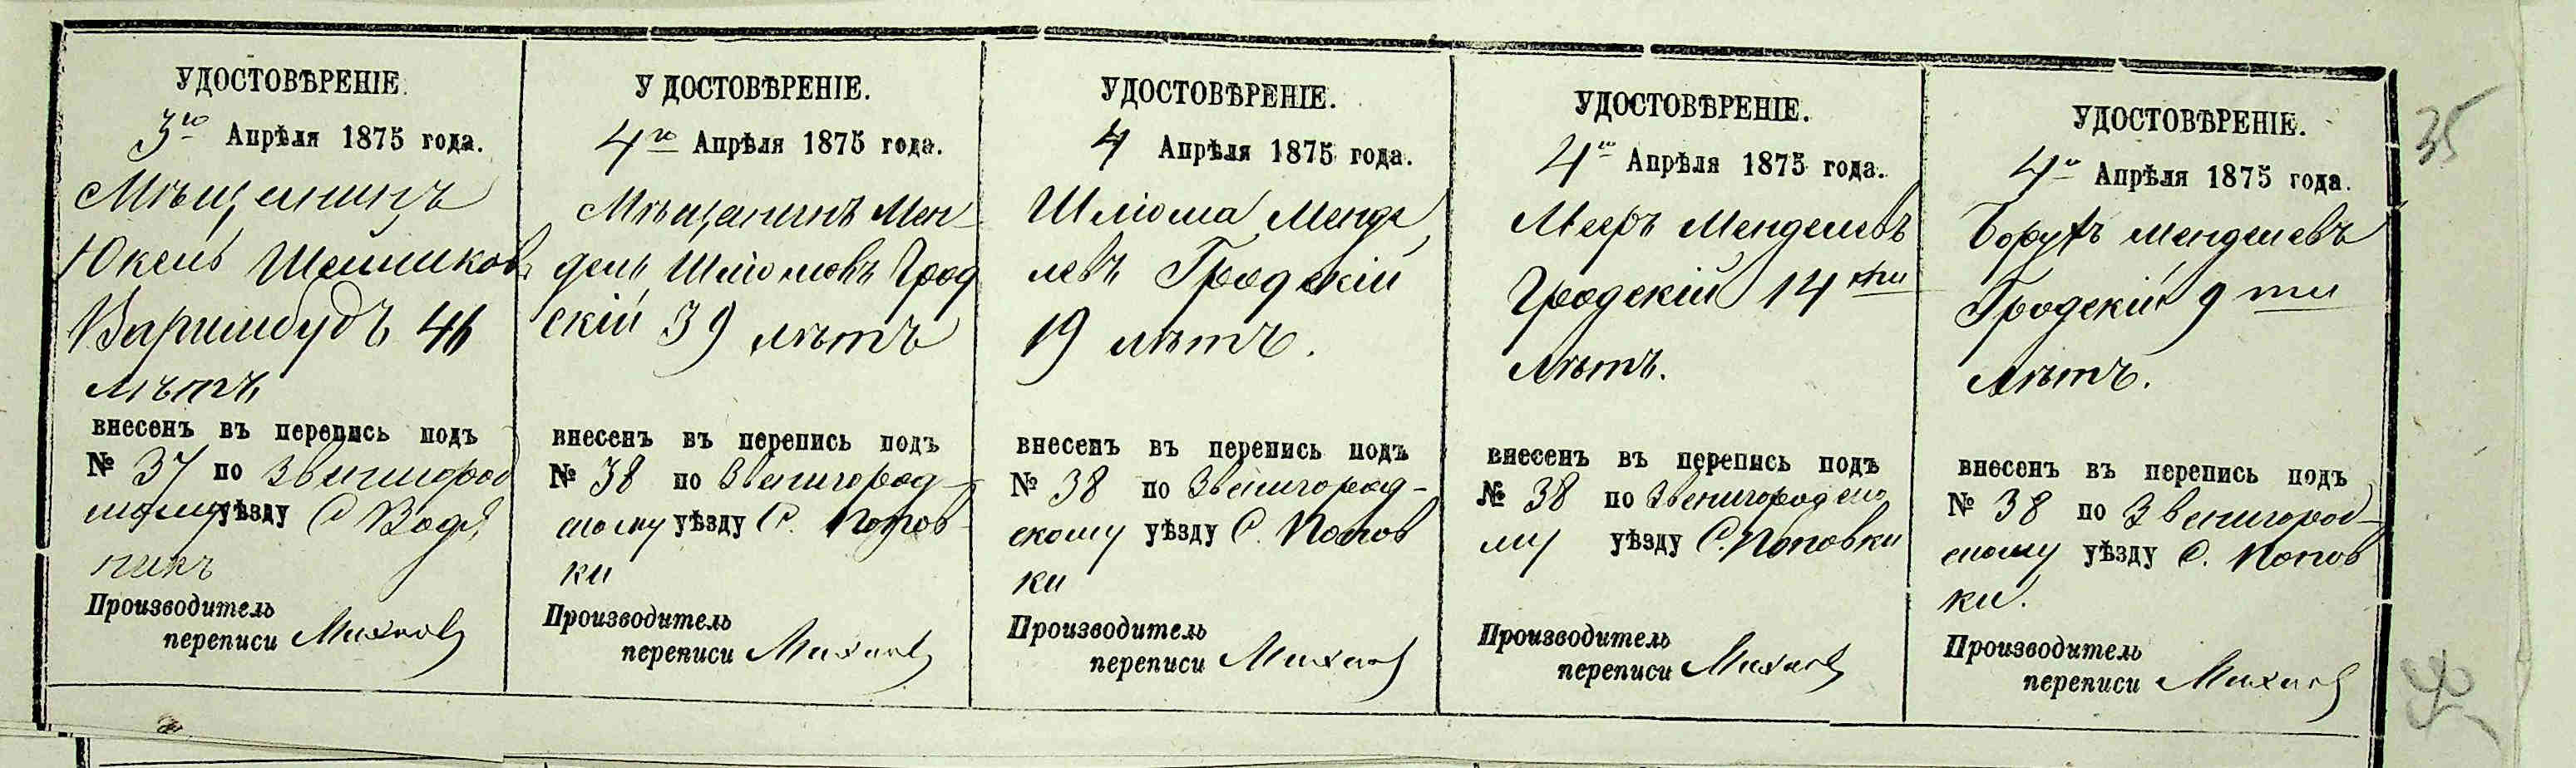 УДОСТОВѢРЕНІЕ.
3го Апрѣля 1875 года.
Мѣщанинъ
Юкель
46
лѣтъ
внесенъ въ перепись подъ
№ 37 по Звенигород
скому уѣзду С Водя
никъ
Производитель
переписи
УДОСТОВѢРЕНІЕ.
4го Апрѣля 1875 года.
Мѣщанинъ Мен-
дель Шліомовъ Грод
скій 39 лѣтъ
внесенъ въ перепись подъ
№ 38 по Звенигород-
скому уѣзду С. Попов
ки
Производитель
переписи
УДОСТОВѢРЕНІЕ.
4 Апрѣля 1875 года.
Шліома Менде
левъ Гродскій
19 лѣтъ.
внесенъ въ перепись подъ
№ 38 по Звенигород-
скому уѣзду С. Попов
ки
Производитель
переписи
УДОСТОВѢРЕНІЕ.
4го Апрѣля 1875 года.
Мееръ Менделевъ
Гродскій 14ти
лѣтъ.
внесенъ въ перепись подъ
№ 38 по Звенигородско
му уѣзду С. Поповки
Производитель
переписи
УДОСТОВѢРЕНІЕ.
4го Апрѣля 1875 года.
Борухъ Менделевъ
Гродскій 9ти
лѣтъ.
внесенъ въ перепись подъ
№ 38 по Звенигород-
скому уѣзду С. Попов
ки.
Производитель
переписи
35